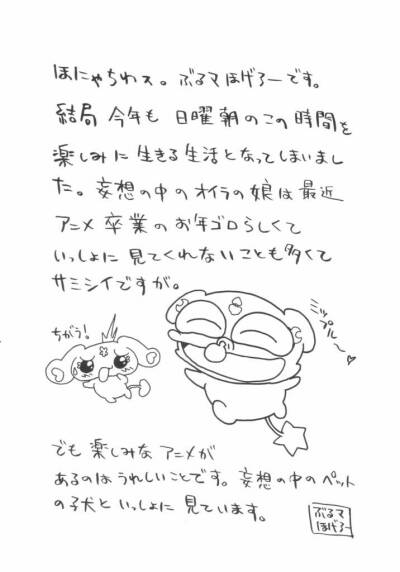 ほにゃちわス。ぶるマほげろーです。
結局 今年も 日曜朝のこの時間を
楽しみに 生きる生活となってしまいまし
た。妄想の中のオイラの娘は最近
アニメ卒業のお年ゴロらしくて
いっしょに見てくれないことも多くて
サミシイですが。
ちがう!
ミップル〜
でも楽しみなアニメが
あるのはうれしいことです。妄想の中のペット
の子犬といっしょに見ています。
ぶるマ
ほげろー